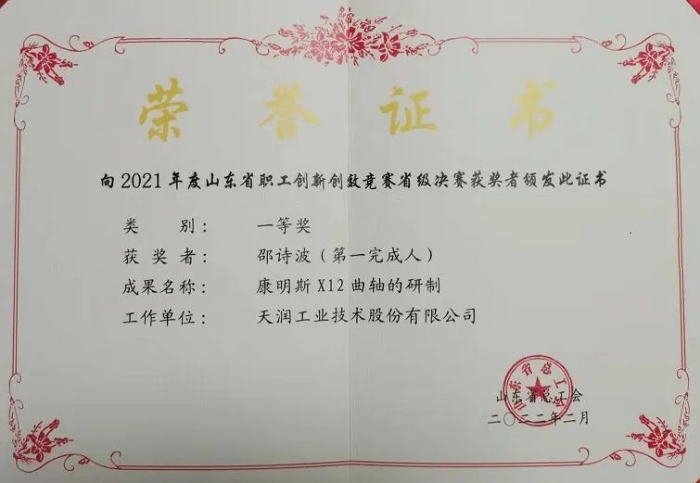 荣誉证书
向2021年度山东省职工创新创效竞赛省级决赛获奖者颁发此证书
类别：一等奖
获奖者：邵诗波（第一完成人）
成果名称：康明斯X12曲轴的研制
工作单位：天润工业技术股份有限公司
山东省总工会
山东省总工会
二〇二二年二月